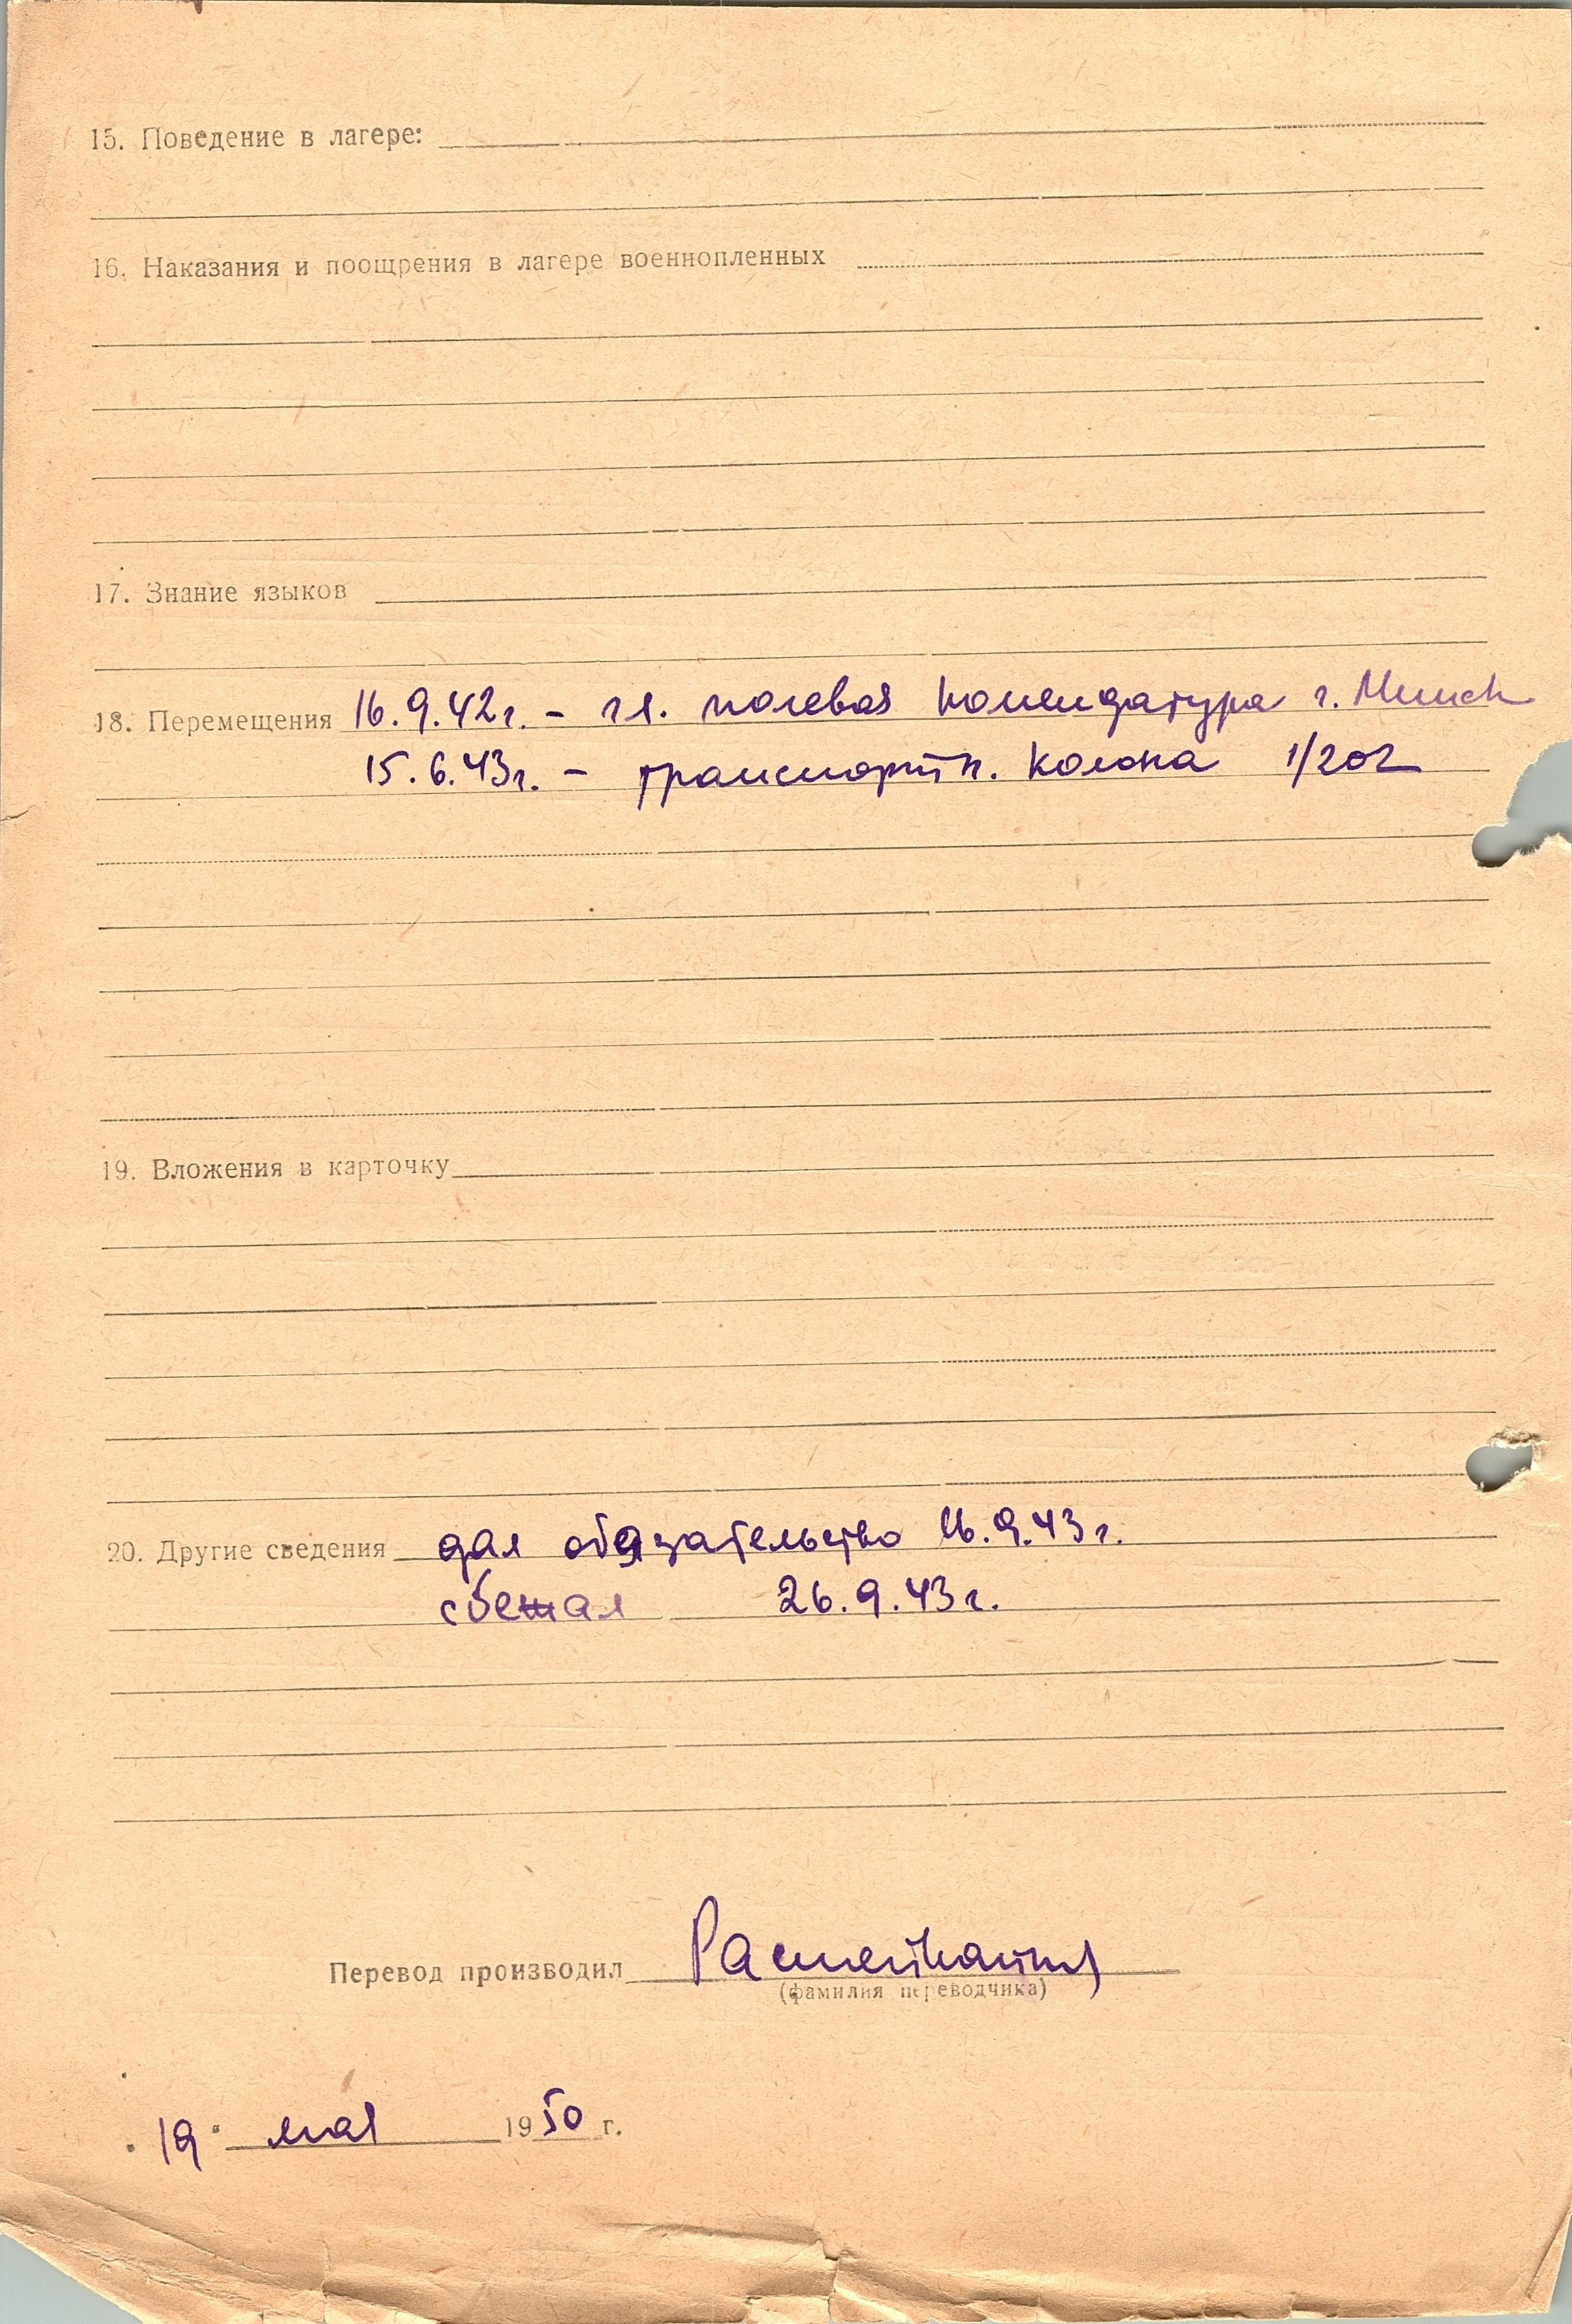 15. Поведение в лагере:
16. Наказания и поощрения в лагере военнопленных
17. Знание языков
18. Перемещения 16.9.42г. – гл. полевая комендатура г. Минск
15.6.43г. – транспортн. колона 1/202
19. Вложения в карточку
20. Другие сведения дал обязательство 16.9.43г.
сбежал 26.9.43г.
Перевод производил
(фамилия переводчика)
19 мая 1950 г.